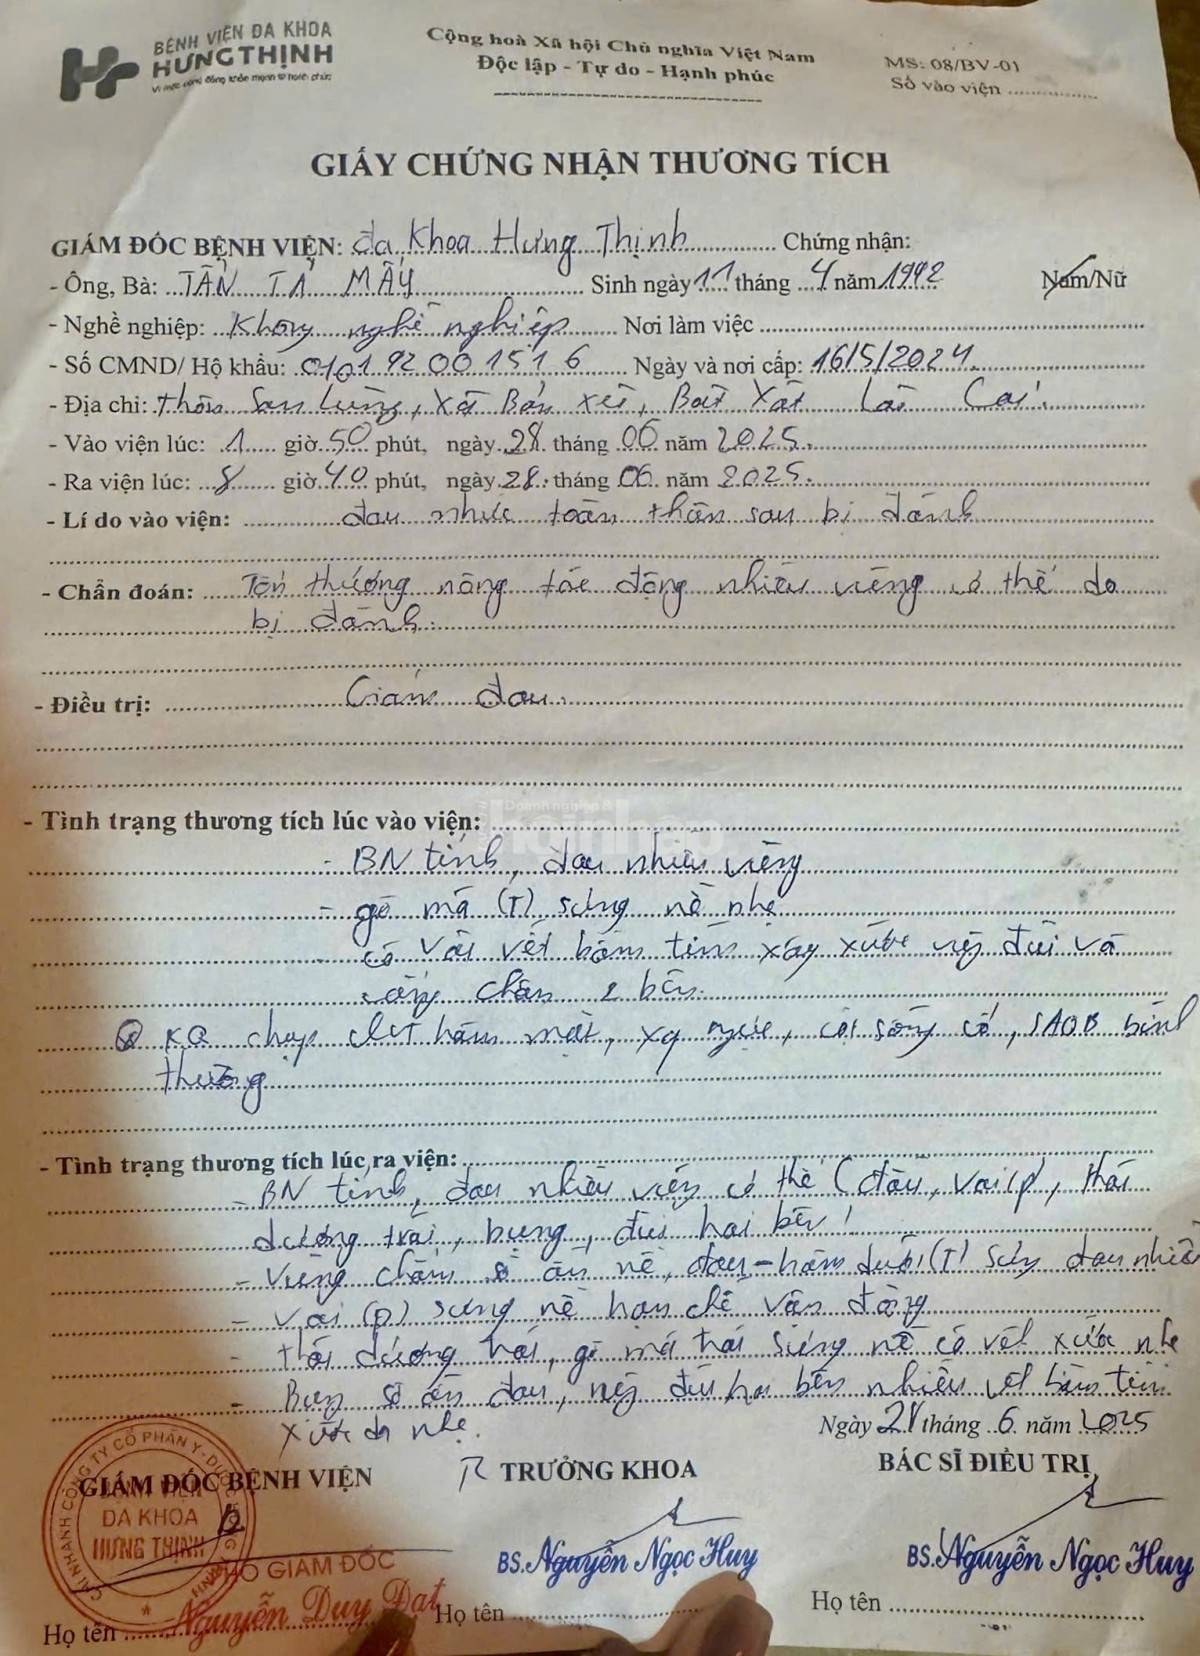 BỆNH VIỆN ĐA KHOA
HƯNG THỊNH
Vì một cộng đồng khỏe mạnh và hạnh phúc
Cộng hoà Xã hội Chủ nghĩa Việt Nam
Độc lập - Tự do - Hạnh phúc
MS: 08/BV-01
Số vào viện
GIẤY CHỨNG NHẬN THƯƠNG TÍCH
GIÁM ĐỐC BỆNH VIỆN: Đa Khoa Hưng Thịnh Chứng nhận:
- Ông, Bà: TẨN TẢ MẨY Sinh ngày 11 tháng 4 năm 1992 Nam/Nữ
- Nghề nghiệp: Không nghề nghiệp Nơi làm việc
- Số CMND/ Hộ khẩu: 010192001516 Ngày và nơi cấp: 16/5/2024
- Địa chỉ: Thôn San Lùng, Xã Bản Xèo, Bát Xát Lào Cai.
- Vào viện lúc: 1 giờ 50 phút, ngày 28 tháng 06 năm 2025.
- Ra viện lúc: 8 giờ 40 phút, ngày 28 tháng 06 năm 2025.
- Lí do vào viện: đau nhức toàn thân sau bị đánh
- Chẩn đoán: Tổn thương nông tác động nhiều vùng cơ thể do
bị đánh.
- Điều trị: Giảm đau.
- Tình trạng thương tích lúc vào viện:
Doanh nghiệp &
hội nhập
- BN tỉnh, đau nhiều vùng
- gò má (T) sưng nề nhẹ
- có vài vết bầm tím xây xước vùng đùi và
cẳng chân 2 bên.
KQ chụp CLVT hàm mặt, xq ngực, cột sống cổ, SAOB bình
thường
- Tình trạng thương tích lúc ra viện:
- BN tỉnh, đau nhiều vùng cơ thể (đầu, vai (p), thái
dương trái, bụng, đùi hai bên)
- Vùng chẩm sờ ấn nề, đau - hàm dưới (T) sưng đau nhiều
- Vai (p) sưng nề hạn chế vận động
- thái dương trái, gò má trái sưng nề có vết xước nhẹ
- Bụng sờ ấn đau, vùng đùi hai bên nhiều vết bầm tím
xước da nhẹ.
Ngày 28 tháng 6 năm 2025
GIÁM ĐỐC BỆNH VIỆN
TRƯỞNG KHOA
BÁC SĨ ĐIỀU TRỊ
CHI NHÁNH CÔNG TY CỔ PHẦN Y - DƯỢC
BỆNH VIỆN
ĐA KHOA
HƯNG THỊNH
PHÓ GIÁM ĐỐC
Nguyễn Duy Đạt
BS. Nguyễn Ngọc Huy
BS. Nguyễn Ngọc Huy
Họ tên
Họ tên
Họ tên